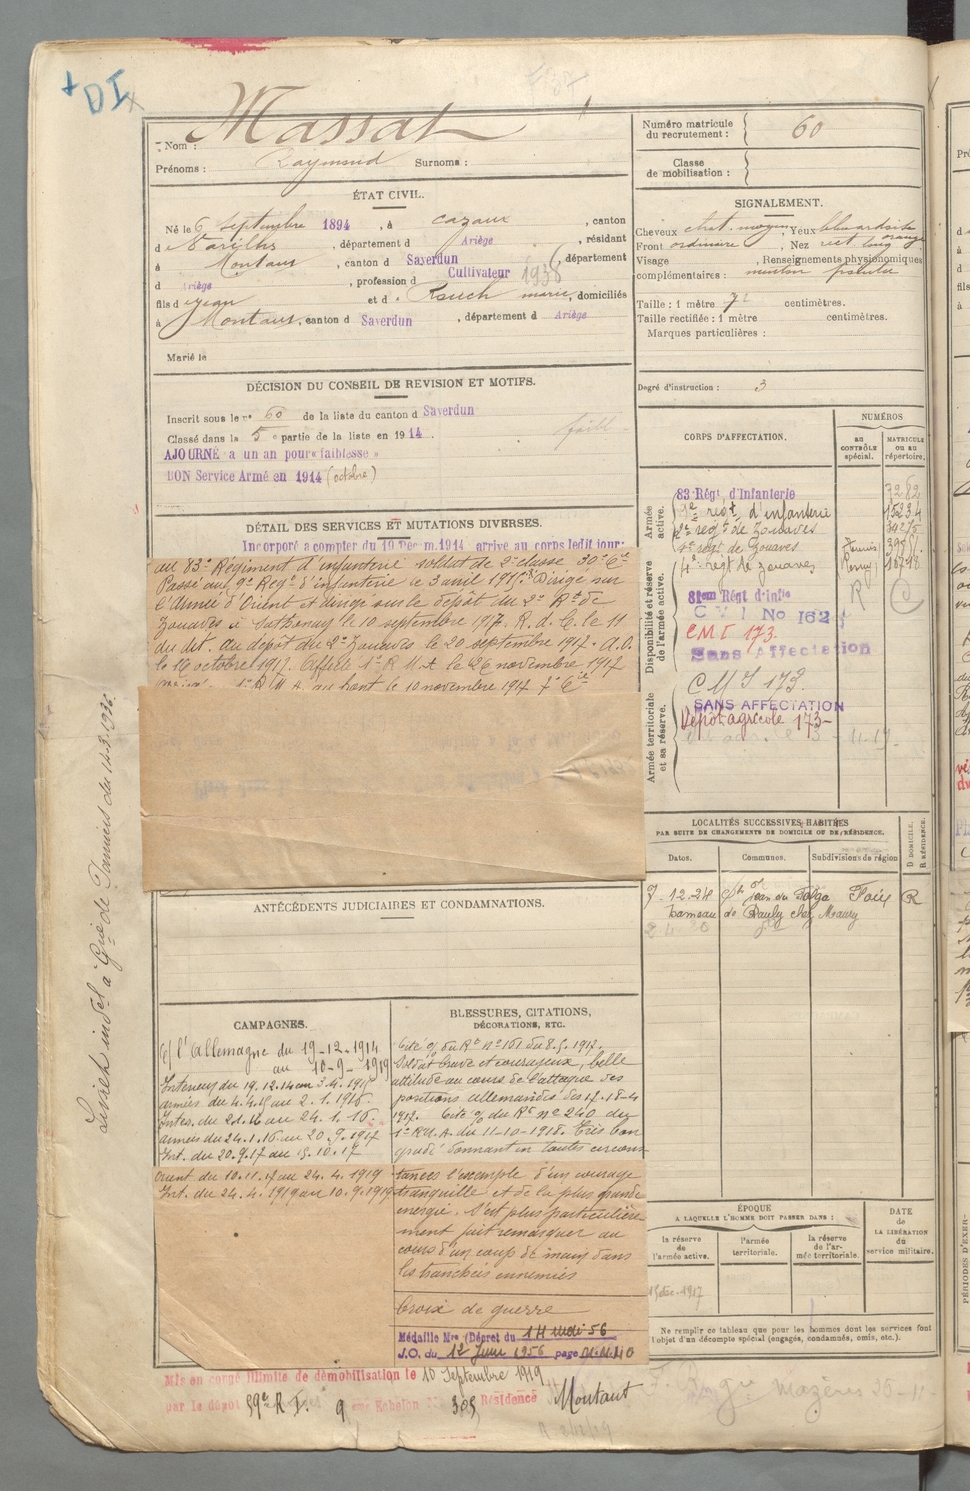 + DI
Nom : Massat
Prénoms : Raymond Surnoms :
ÉTAT CIVIL.
Né le 6 septembre 1894, à Cazaux, canton
d Varilhes, département d Ariège, résidant
à Montaut, canton d Saverdun, département
d Ariège, profession d Cultivateur 1936
fils d Jean et d Rouch marie, domiciliés
à Montaut, canton d Saverdun, département d Ariège
Marié le
DÉCISION DU CONSEIL DE REVISION ET MOTIFS.
Inscrit sous le n° 60 de la liste du canton d Saverdun
Classé dans la 5e partie de la liste en 1914.
AJOURNÉ à un an pour « faiblesse »
BON Service Armé en 1914 (octobre)
DÉTAIL DES SERVICES ET MUTATIONS DIVERSES.
Incorporé à compter du 19 Décem. 1914 arrivé au corps ledit jour:
au 83e Régiment d'infanterie soldat de 2e classe 30e Cie
Passé au 9e Regt d'infanterie le 3 avril 1915. Dirigé sur
l'Armée d'Orient et dirigé sur le dépôt du 2e Rt de
Zouaves à Sathonay le 10 septembre 1917. R. d. C. le 11
du dit. au dépôt du 2e Zouaves le 20 septembre 1917. A.O.
le 16 octobre 1917. Affecté 1er R M A le 26 novembre 1917
1er R M A. au front le 10 novembre 1917 7e Cie
ANTÉCÉDENTS JUDICIAIRES ET CONDAMNATIONS.
CAMPAGNES.
c/ l'Allemagne du 19-12-1914
au 10-9-1919
Intérieur du 19.12.14 au 3.4.1915
armées du 4.4.15 au 2.1.1916.
Inter. du 2.1.16 au 24.1.16.
armées du 24.1.16 au 20.9.1917
Int. du 20.9.17 au 15.10.17
Orient du 10.11.17 au 24.4.1919
Int. du 24.4.1919 au 10.9.1919
BLESSURES, CITATIONS,
DÉCORATIONS, ETC.
Cité o/ du Rt n° 161 du 8.5.1917.
Soldat brave et courageux, belle
attitude au cours de l'attaque des
positions allemandes des 17-18-4
1917. Cité o/ du Rt n° 240 du
1er R.M.A. du 11-10-1918. Très bon
gradé donnant en toutes circons
tances l'exemple d'un courage
tranquille et de la plus grande
energie. S'est plus particulière
ment fait remarquer au
cours d'un coup de main dans
les tranchées ennemies
Croix de guerre
Médaille Mre (Décret du 14 mai 56
J.O. du 12 Juin 1956 page
Mis en congé illimité de démobilisation le 10 Septembre 1919
par le dépôt 59e R I. 9eme Echelon N° 385 Résidence Montaut
Numéro matricule
du recrutement : 60
Classe
de mobilisation :
SIGNALEMENT.
Cheveux chat. moyen, Yeux bleu
Front ordinaire, Nez rect long
Visage , Renseignements physionomiques
complémentaires : menton
Taille : 1 mètre 72 centimètres.
Taille rectifiée : 1 mètre centimètres.
Marques particulières :
Degré d'instruction : 3
CORPS D'AFFECTATION.
NUMÉROS
au
CONTRÔLE
spécial.
MATRICULE
OU AU
répertoire.
Armée
active.
83 Régt d'Infanterie
regt d'infanterie
2e regt de Zouaves
regt de Zouaves
4e regt de zouaves
Disponibilité et réserve
de l'armée active.
81eme Régt d'Infie
C V I No 162
CMI 173.
Sans Affectation
R
C
Armée territoriale
et sa réserve.
C M I 173.
SANS AFFECTATION
Dépot agricole 173-
LOCALITÉS SUCCESSIVES HABITÉES
PAR SUITE DE CHANGEMENTS DE DOMICILE OU DE RÉSIDENCE.
Dates.
Communes.
Subdivisions de région
D DOMICILE.
R RÉSIDENCE.
7.12.28 St Jean du Falga Foix R
hameau de Pauly chez Maury
ÉPOQUE
A LAQUELLE L'HOMME DOIT PASSER DANS :
la réserve
de
l'armée active.
l'armée
territoriale.
la réserve
de l'ar-
mée territoriale.
DATE
de
LA LIBÉRATION
du
service militaire.
Ne remplir ce tableau que pour les hommes dont les services font
l'objet d'un décompte spécial (engagés, condamnés, omis, etc.).